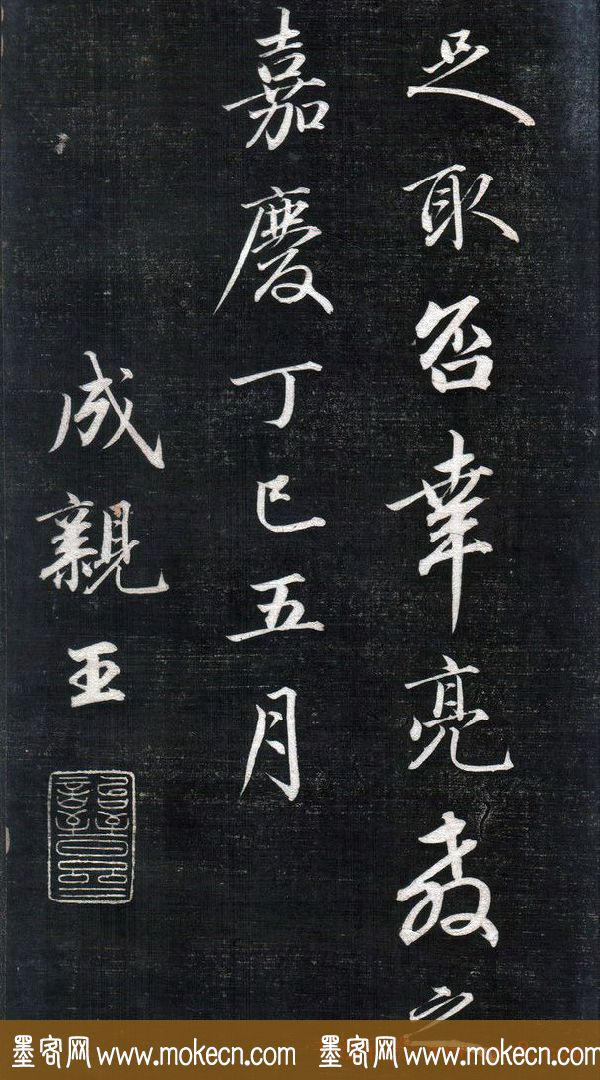 足取否幸亮教之
嘉慶丁巳五月
成親王
墨客网 www.mokecn.com 墨客网 www.mokecn.com